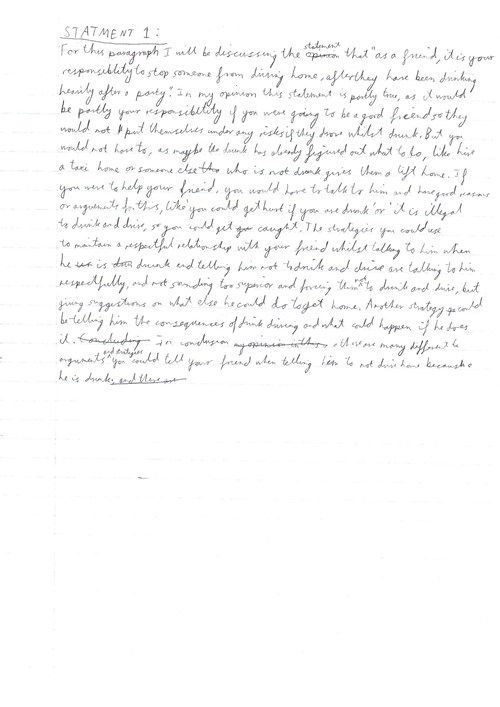 STATMENT 1:
For this paragraph I will be discussing the statement that "as a friend, it is your
responsibility to stop someone from driving home, after they have been drinking
heavily after a party". In my opinion this statement is partly true, as it would
be partly your responsibility if you were going to be a good friend so they
would not put themselves under any risks if they drove whilst drunk. But you
would not have to, as maybe the drunk has already figured out what to do, like hire
a taxi home or someone else who is not drunk gives them a lift home. If
you were to help your friend, you would have to talk to him and have good reasons
or arguments for this, like 'you could get hurt if you are drunk' or 'it is illegal
to drink and drive, so you could get caught'. The strategies you could use
to maintain a respectful relationship with your friend whilst talking to him when
he is drunk and telling him not to drink and drive are talking to him
respectfully, and not sounding too superior and forcing them not to drink and drive, but
giving suggestions on what else he could do to get home. Another strategy could
be telling him the consequences of drink driving and what could happen if he does
it. In conclusion there are many different
arguments and strategies you could tell your friend when telling him to not drive home because
he is drunk.